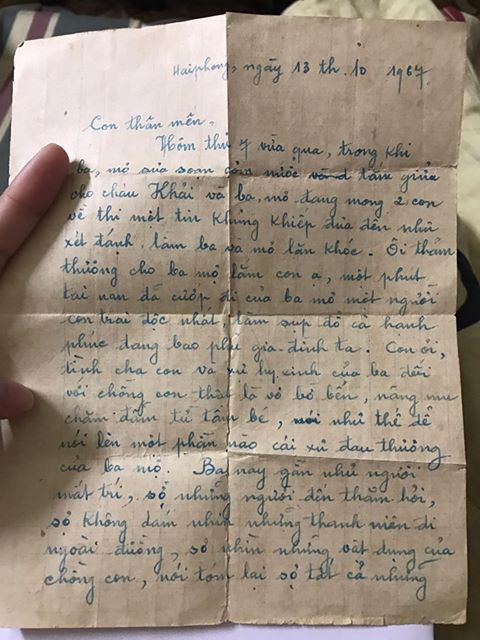 Haiphong, ngày 13 th. 10 1967
Con thân mến.
Hôm thứ 7 vừa qua, trong khi
ba, mợ sửa soạn cơm nước và tắm giửa
cho cháu Khải và ba, mợ đang mong 2 con
về thì một tin khủng khiếp đưa đến như
xét đánh, làm ba và mợ lăn khóc. Ôi thảm
thương cho ba mợ lắm con ạ, một phut
tai nạn đã cướp đi của ba mợ một người
con trai độc nhất, làm sụp đổ cả hạnh
phúc đang bao phủ gia đình ta. Con ơi,
tình cha con và sự hy sinh của ba đối
với chồng con thật là vô bờ bến, nâng niu
chăm đắm từ tấm bé, nói như thế để
nói lên một phần nào cái sự đau thương
của ba mợ. Ba nay gần như người
mất trí, sợ những người đến thăm hỏi,
sợ không dám nhìn những thanh niên đi
ngoài đường, sợ nhìn những vật dụng của
chồng con, nói tóm lại sợ tất cả những